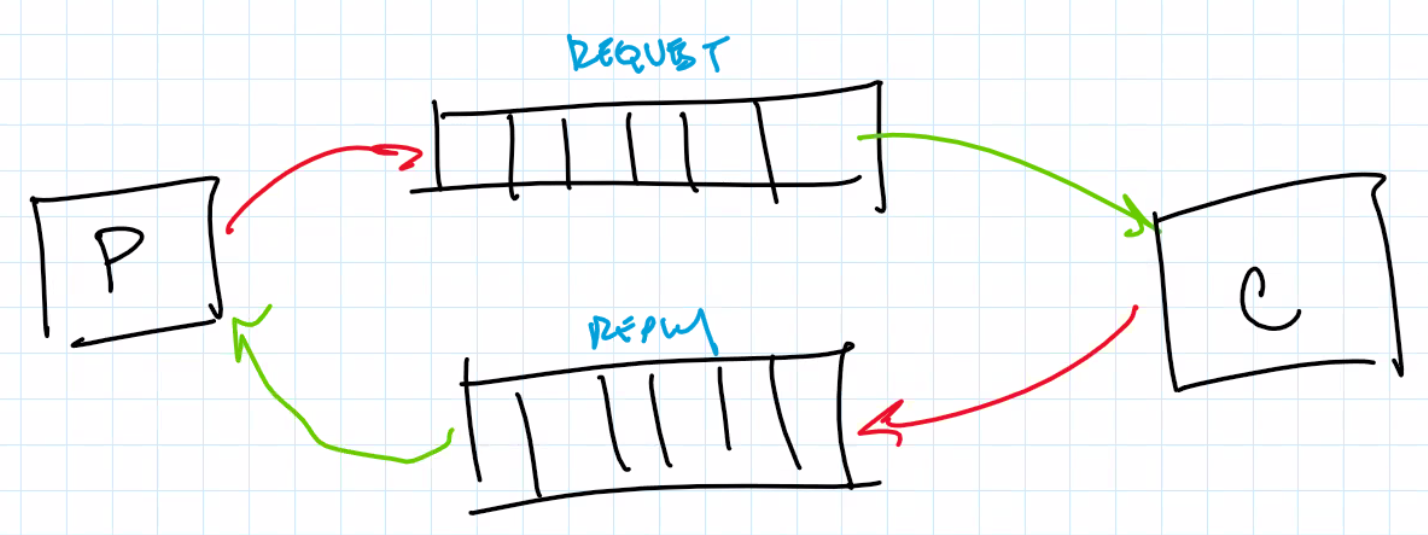 REQUEST
P
C
REPLY